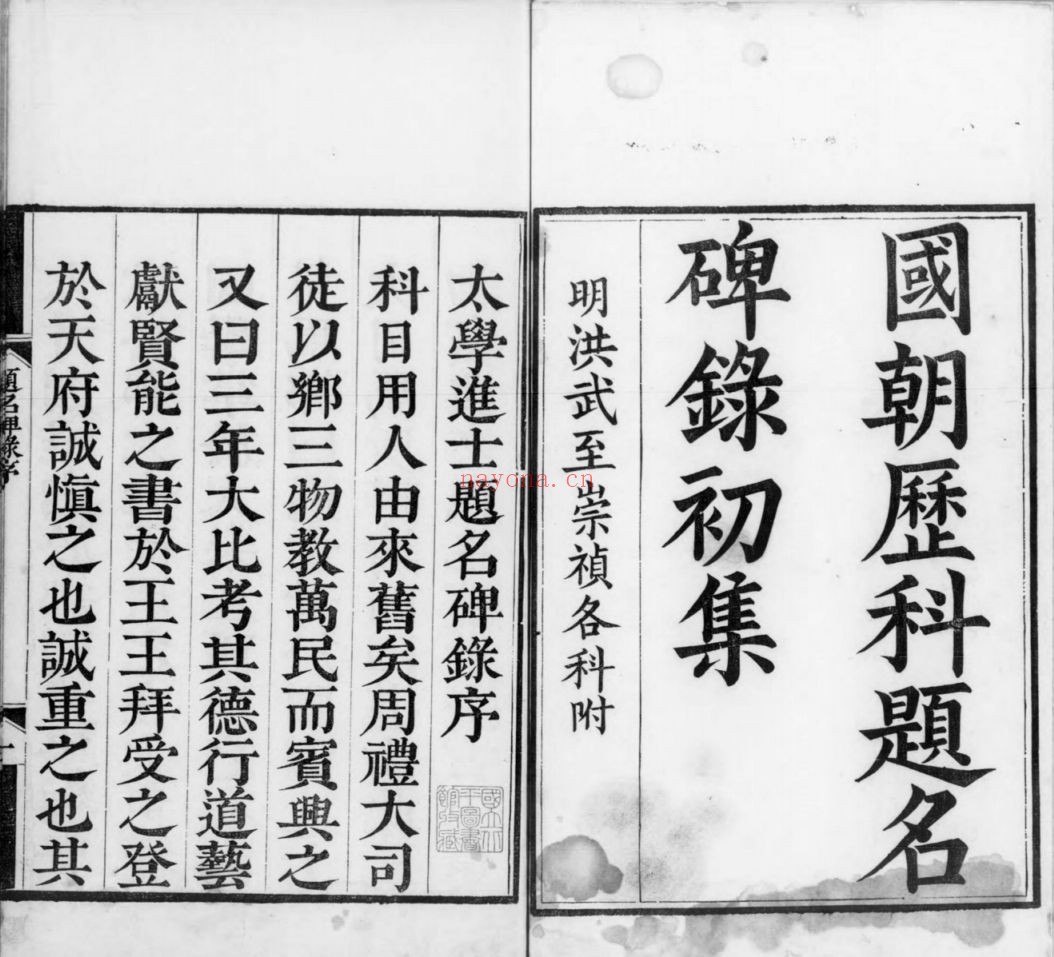 國朝歷科題名
碑錄初集
明洪武至崇禎各科附
太學進士題名碑錄序
科目用人由來舊矣周禮大司
徒以鄉三物教萬民而賓興之
又曰三年大比考其德行道藝
獻賢能之書於王王拜受之登
於天府誠慎之也誠重之也其
題名碑錄序
一
nayona.cn